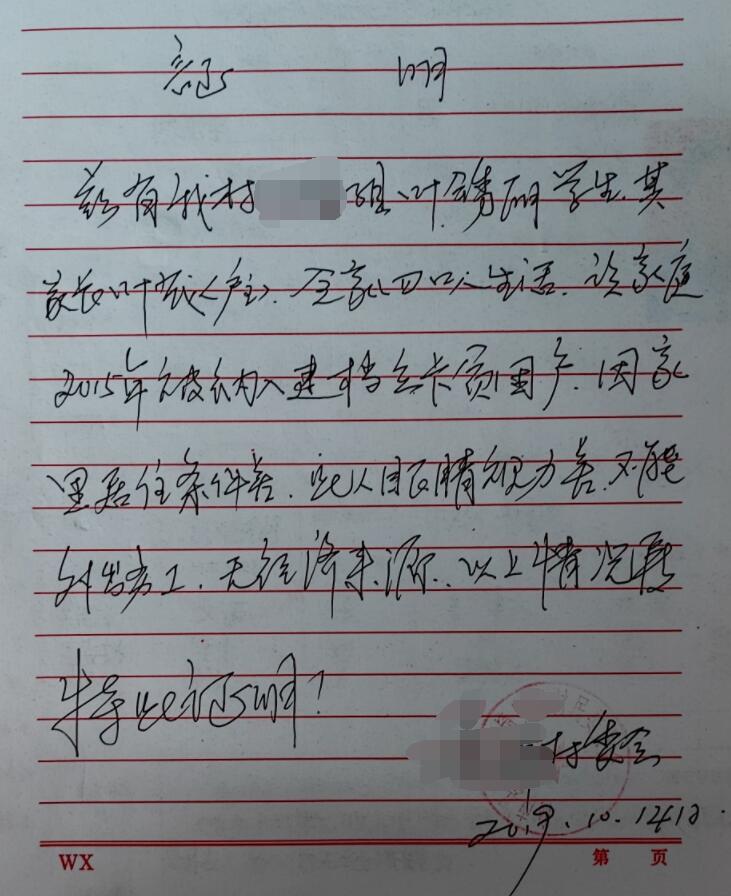 证 明
兹有我村 组叶绣丽学生,其
家长叶武(户主),全家四口人生活,该家庭
2015年被纳入建档立卡贫困户,因家
里居住条件差,此人眼睛视力差,不能
外出务工,无经济来源,以上情况
特此证明!
村委会
2019.10.12
WX
第 页